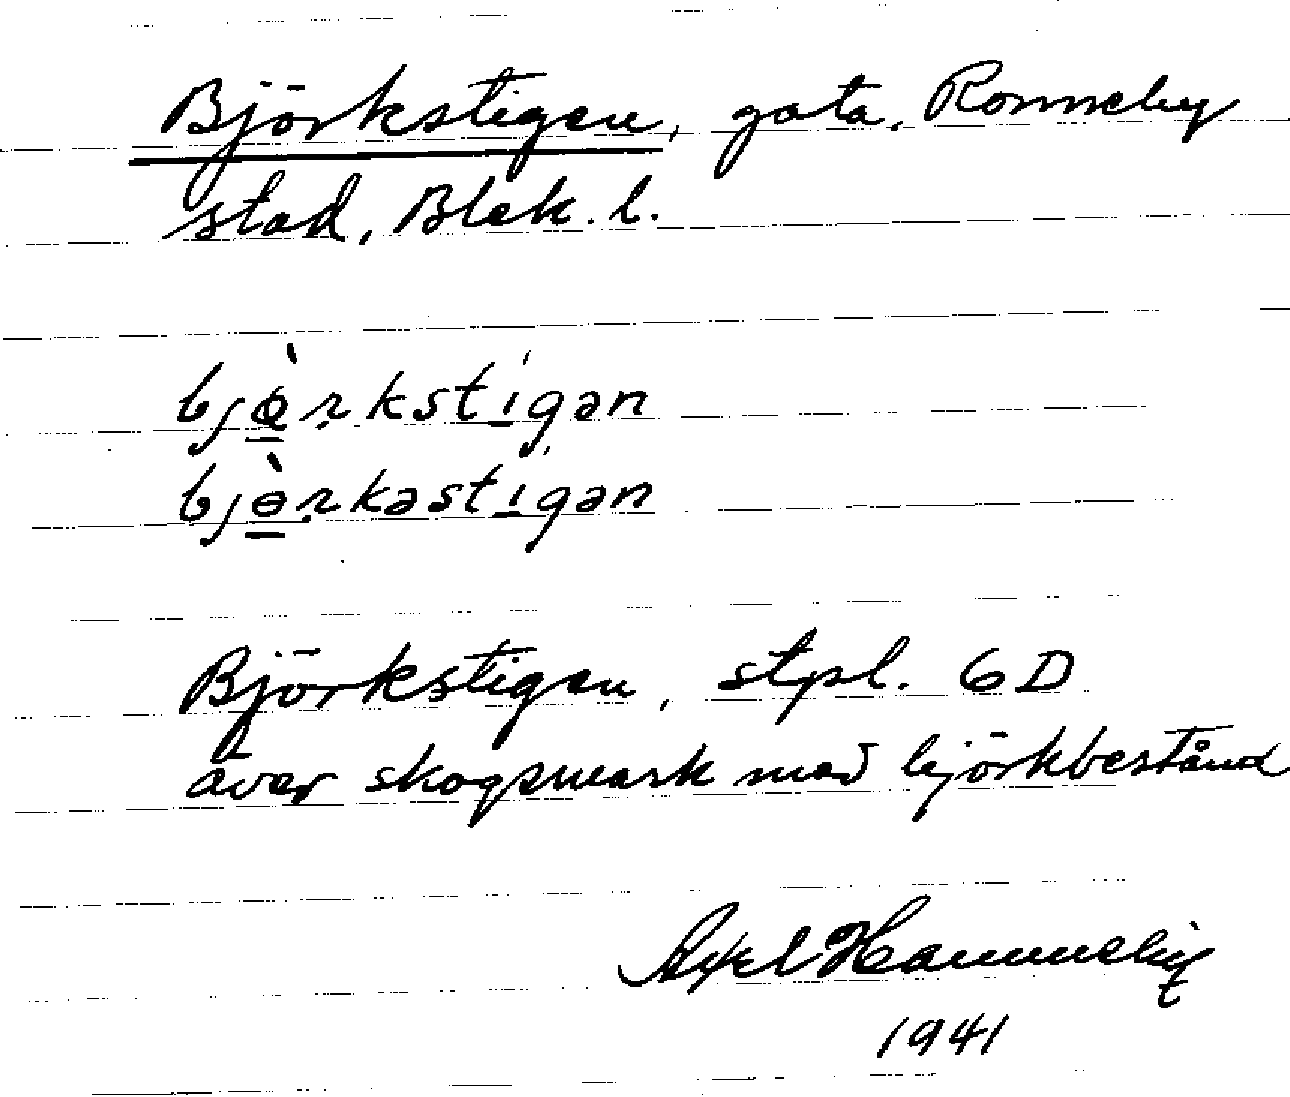 Björkstigen, gata, Ronneby
stad, Blek. l.
bjɵ̀rkstigən
bjɵ̀rkəstigən
Björkstigen, stpl. 6D
över skogsmark med björkbestånd
Axel
1941